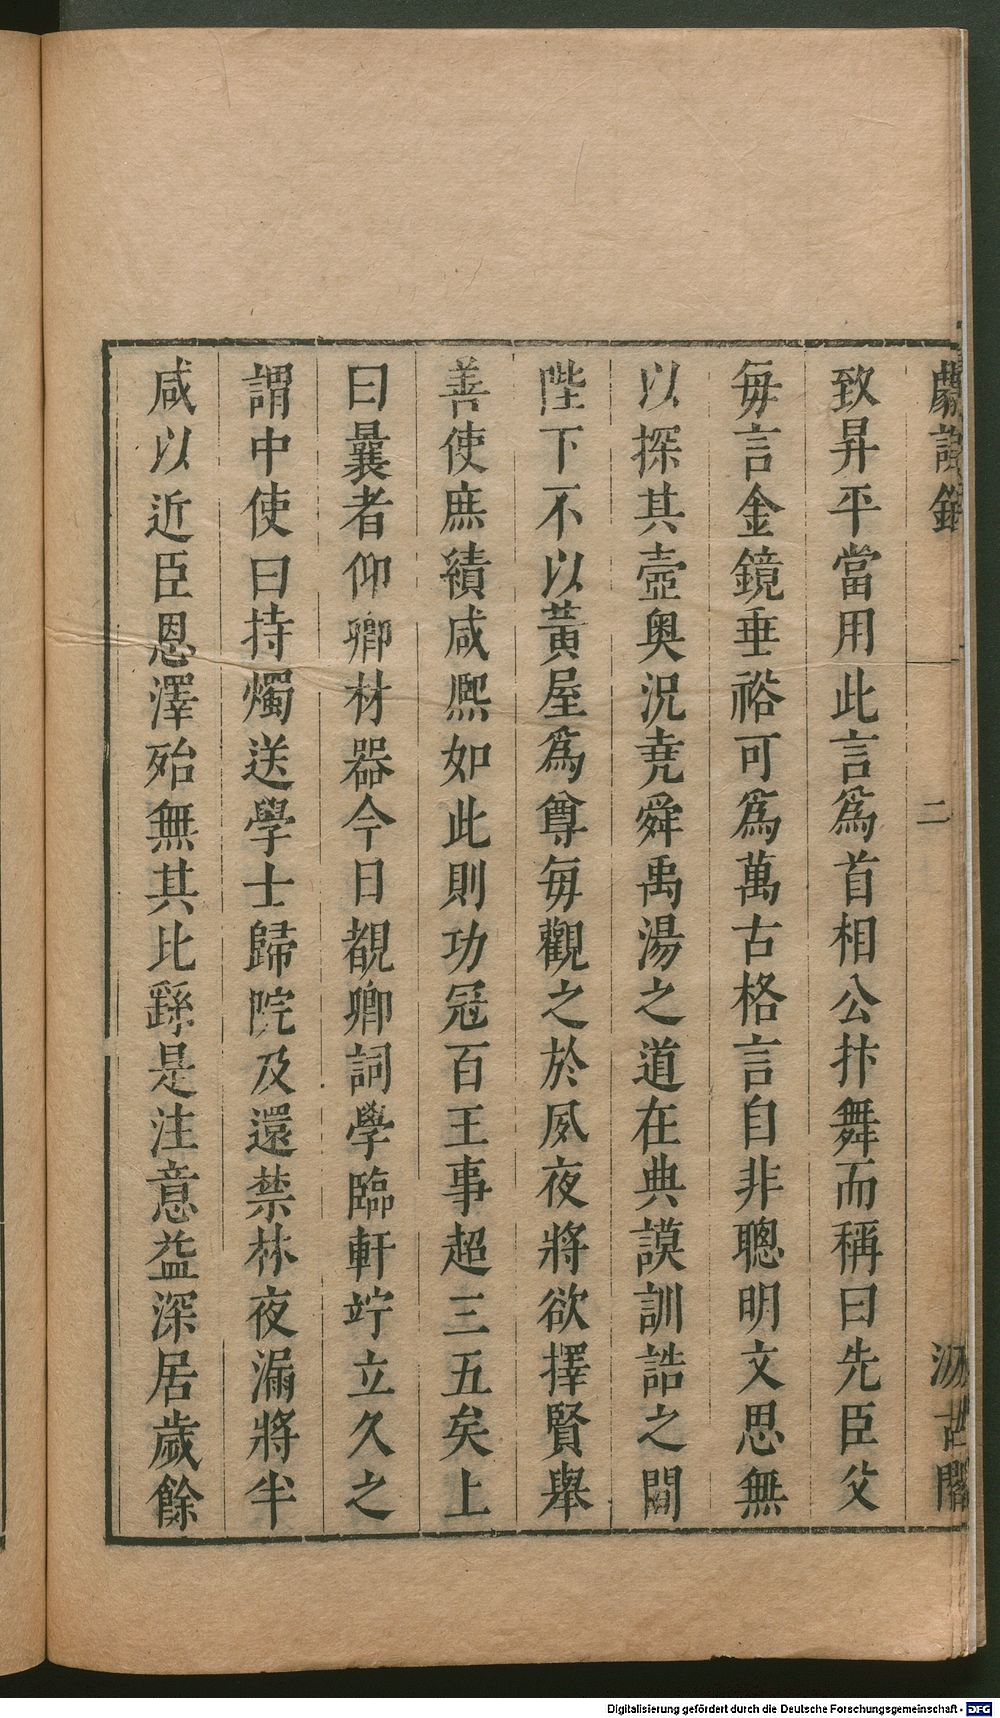 劇談錄
二
汲古閣
致昇平當用此言爲首相公抃舞而稱曰先臣父
毎言金鏡垂裕可爲萬古格言自非聰明文思無
以探其壼奧況堯舜禹湯之道在典謨訓誥之間
陛下不以黃屋爲尊毎觀之於夙夜將欲擇賢舉
善使庶績咸熙如此則功冠百王事超三五矣上
曰曩者仰卿材器今日覩卿詞學臨軒竚立久之
謂中使曰持燭送學士歸院及還禁林夜漏將半
咸以近臣恩澤殆無其比繇是注意益深居歲餘
Digitalisierung gefördert durch die Deutsche Forschungsgemeinschaft - DFG